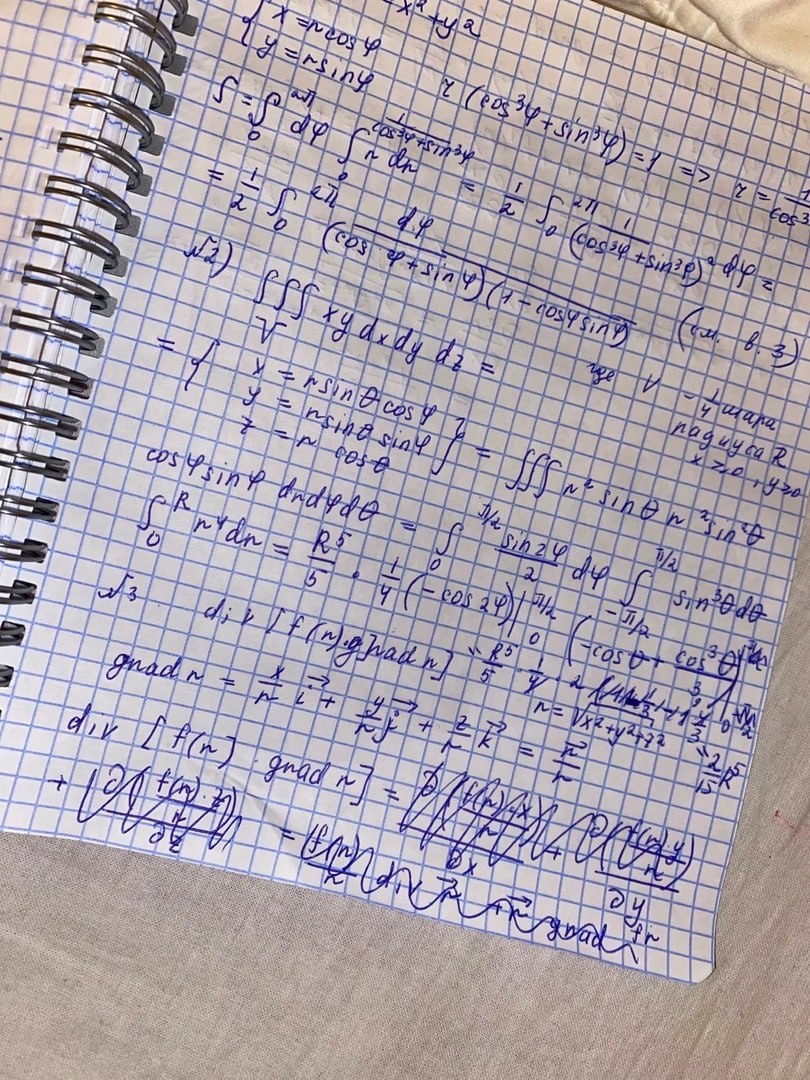 x²+y²
{ x = r cosφ
y = r sinφ
r (cos³φ + sin³φ) = 1 => r = 1/cos³
S = ∫₀^{2π} dφ ∫₀^{1/(cos³φ+sin³φ)} r dr = 1/2 ∫₀^{2π} 1/(cos³φ + sin³φ)² dφ =
= 1/2 ∫₀^{2π} dφ/(cos φ + sin φ)(1 - cosφ sinφ) (см. в. 3)
№2) ∭_V xy dx dy dz = где V - 1/4 шара
радиуса R
x≥0, y≥0
= { x = r sinθ cosφ
y = r sinθ sinφ
z = r cosθ } = ∭ r² sinθ r² sin²θ
cosφ sinφ dr dφ dθ = ∫₀^{π/2} sin2φ/2 dφ ∫_{-π/2}^{π/2} sin³θ dθ
∫₀^R r⁴ dr = R⁵/5 · 1/4 (-cos 2φ)|₀^{π/2} (-cosθ + cos³θ/3)
= R⁵/5 · 1/4 · 2
= 2/15 R⁵
№3 div [f(r) · grad r] r = √x²+y²+z²
grad r = x/r i⃗ + y/r j⃗ + z/r k⃗ = r⃗/r
div [f(r) · grad r] = ∂(f(r)·x/r)/∂x + ∂(f(r) y/r)/∂y
+ ∂(f(r)·z/r)/∂z = f(r)/r div r⃗ + r⃗ grad fr